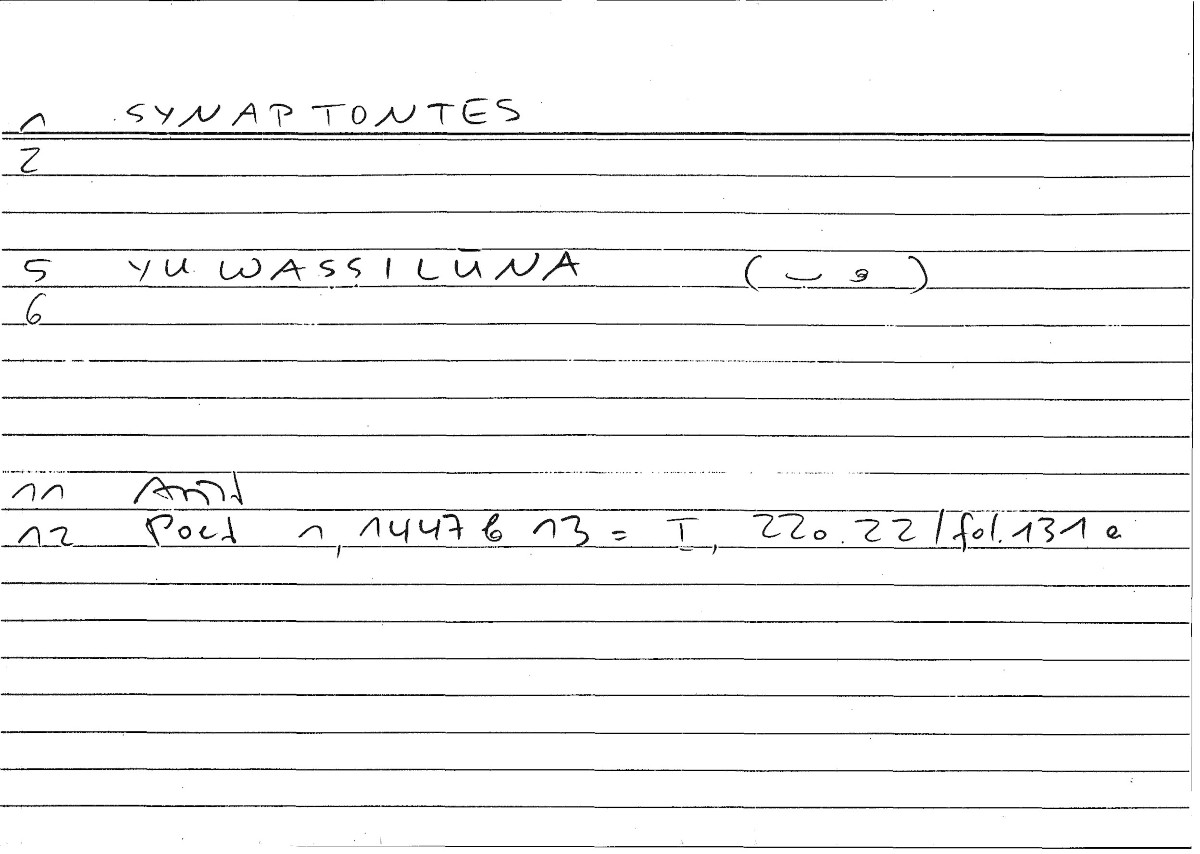 1 SYNAPTONTES
2
5 YUWASSILŪNA ( ں و )
6
11 Arist
12 Poet 1, 1447 b 13 = I, 220.22 / fol. 131 a